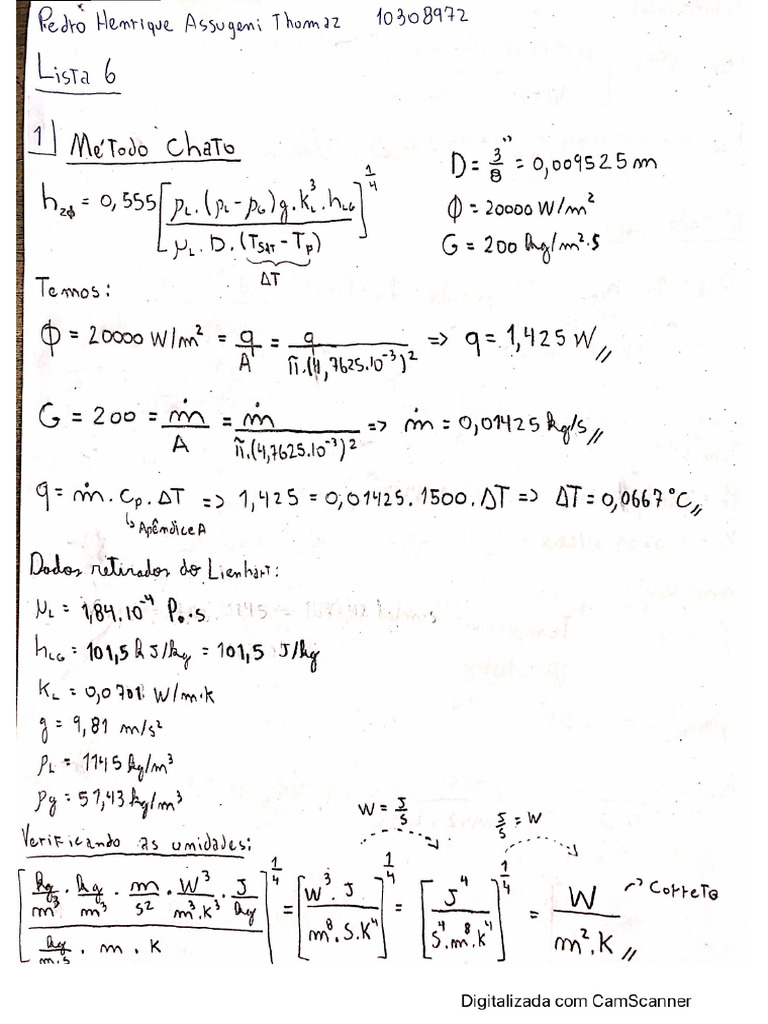 Pedro Henrique Assugeni Thomaz 10308972
Lista 6
1) Método Chato
h₂φ = 0,555 [ρL.(ρL-ρG)g.kL³.hLG / μL.D.(TSAT-Tp)]^1/4
ΔT
D = 3/8" = 0,009525 m
ϕ = 20000 W/m²
G = 200 kg/m².s
Temos:
ϕ = 20000 W/m² = q/A = q/π.(4,7625.10⁻³)² => q = 1,425 W //
G = 200 = ṁ/A = ṁ/π.(4,7625.10⁻³)² => ṁ = 0,01425 kg/s //
q = ṁ.cp.ΔT => 1,425 = 0,01425.1500.ΔT => ΔT = 0,0667 °C //
↳ Apêndice A
Dados retirados do Lienhart:
μL = 1,84.10⁻⁴ Pa.s
hLG = 101,5 kJ/kg = 101,5 J/kg
kL = 0,0701 W/m.k
g = 9,81 m/s²
ρL = 1145 kg/m³
ρg = 57,43 kg/m³
Verificando as unidades:
W = J/s J/s = W
[kg/m³ . kg/m³ . m/s² . W³/m³.K³ . J/kg / kg/m.s . m . K]^1/4 = [W³.J / m⁸.S.K⁴]^1/4 = [J⁴ / S⁴.m⁸.K⁴]^1/4 = W/m².K // → Correto
Digitalizada com CamScanner